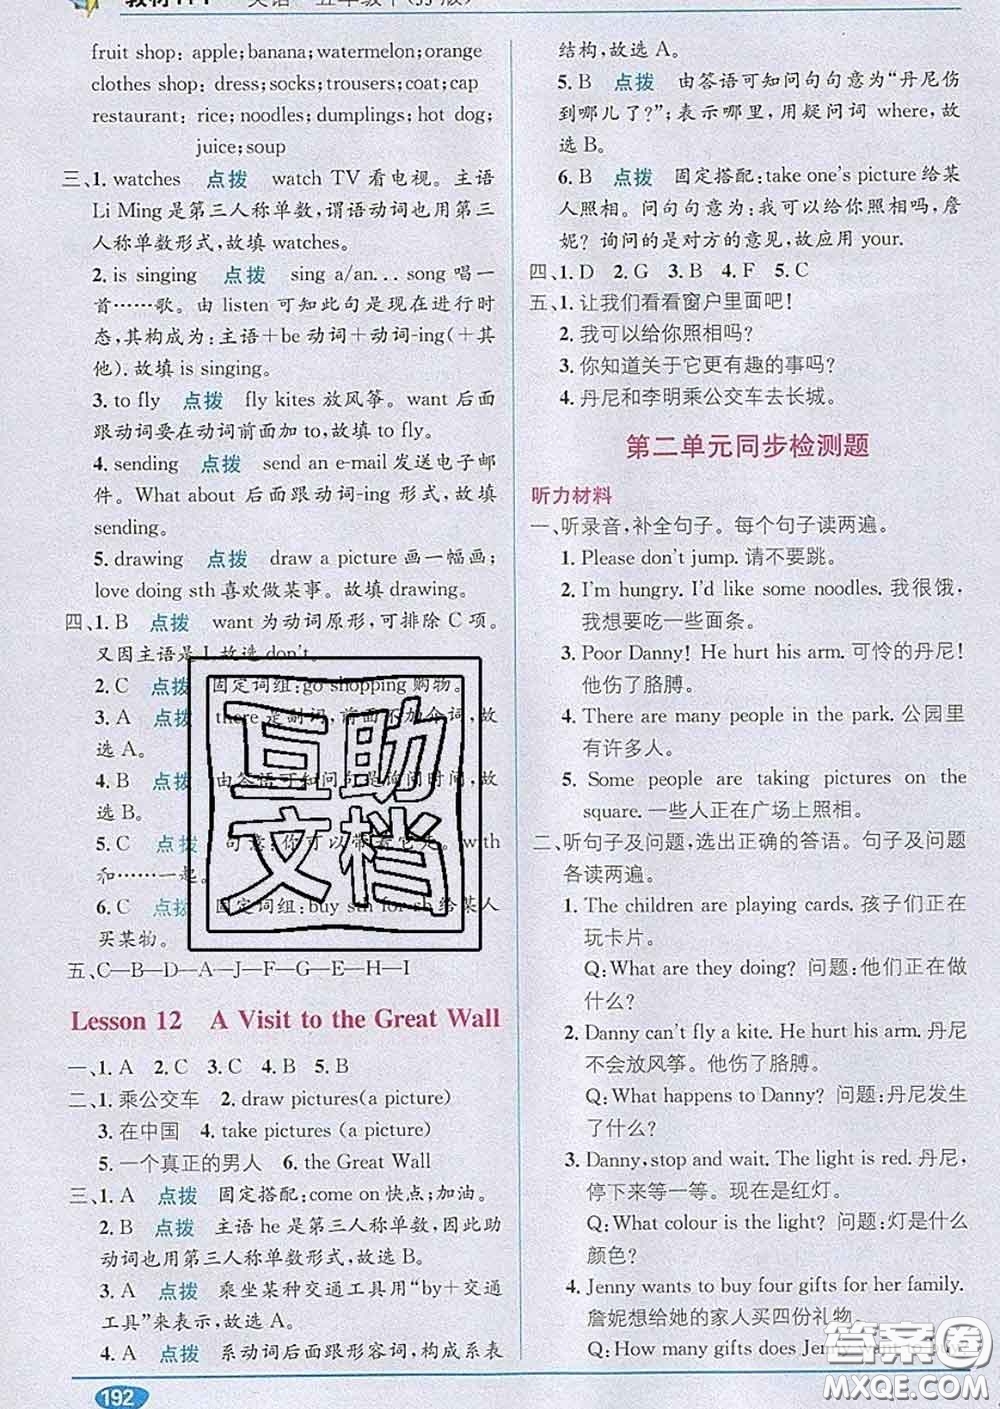 fruit shop: apple;banana;watermelon;orange
clothes shop: dress;socks;trousers;coat;cap
restaurant: rice;noodles;dumplings;hot dog;
juice;soup
三、1. watches 点拨 watch TV 看电视。主语
Li Ming 是第三人称单数,谓语动词也用第三
人称单数形式,故填 watches。
2. is singing 点拨 sing a/an... song 唱一
首……歌。由 listen 可知此句是现在进行时
态,其构成为:主语+be 动词+动词-ing(+其
他). 故填 is singing.
3. to fly 点拨 fly kites 放风筝。want 后面
跟动词要在动词前面加 to,故填 to fly。
4. sending 点拨 send an e-mail 发送电子邮
件。What about 后面跟动词-ing 形式,故填
sending.
5. drawing 点拨 draw a picture 画一幅画;
love doing sth 喜欢做某事。故填 drawing。
四、1. B 点拨 want 为动词原形,可排除 C 项。
又因主语是 I,故选 don't。
2. C 点拨 固定词组:go shopping 购物。
3. A 点拨 there 是副词,前面不加介词,故
选 A。
4. B 点拨 由答语可知问句是询问时间,故
选 B。
5. C 点拨 句意:你可以带着它关。with
和……一起。
6. C 点拨 固定词组:buy sth for sb 给某人
买某物。
五、C—B—D—A—J—F—G—E—H—I
Lesson 12 A Visit to the Great Wall
一、1. A 2. C 3. C 4. B 5. B
二、1. 乘公交车 2. draw pictures(a picture)
3. 在中国 4. take pictures (a picture)
5. 一个真正的男人 6. the Great Wall
三、1. A 点拨 固定搭配;come on 快点;加油。
2. B 点拨 主语 he 是第三人称单数,因此助
动词也用第三人称单数形式,故选 B。
3. A 点拨 乘坐某种交通工具用“by+交通
工具”来表示,故选 A。
4. A 点拨 系动词后面跟形容词,构成系表
192
结构,故选 A。
5. B 点拨 由答语可知问句句意为“丹尼伤
到哪儿了?”;表示哪里,用疑问词 where,故
选 B。
6. B 点拨 固定搭配;take one's picture 给某
人照相。问句句意为:我可以给你照相吗,詹
妮? 询问的是对方的意见,故应用 your.
四、1. D 2. G 3. B 4. F 5. C
五、1. 让我们看看窗户里面吧!
2. 我可以给你照相吗?
3. 你知道关于它更有趣的事吗?
4. 丹尼和李明乘公交车去长城。
第二单元同步检测题
听力材料
一、听录音,补全句子。每个句子读两遍。
1. Please don't jump. 请不要跳。
2. I'm hungry. I'd like some noodles. 我很饿,
我想要吃一些面条。
3. Poor Danny! He hurt his arm. 可怜的丹尼!
他伤了胳膊。
4. There are many people in the park. 公园里
有许多人。
5. Some people are taking pictures on the
square. 一些人正在广场上照相。
二、听句子及问题,选出正确的答语。句子及问题
各读两遍。
1. The children are playing cards. 孩子们正在
玩卡片。
Q:What are they doing? 问题:他们正在做
什么?
2. Danny can't fly a kite. He hurt his arm. 丹尼
不会放风筝。他伤了胳膊。
Q:What happens to Danny? 问题:丹尼发生
了什么?
3. Danny,stop and wait. The light is red. 丹尼,
停下来等一等。现在是红灯。
Q:What colour is the light? 问题:灯是什么
颜色?
4. Jenny wants to buy four gifts for her family.
詹妮想给她的家人买四份礼物。
Q:How many gifts does Jenny
互助
文档
答案圈
MXQE.COM